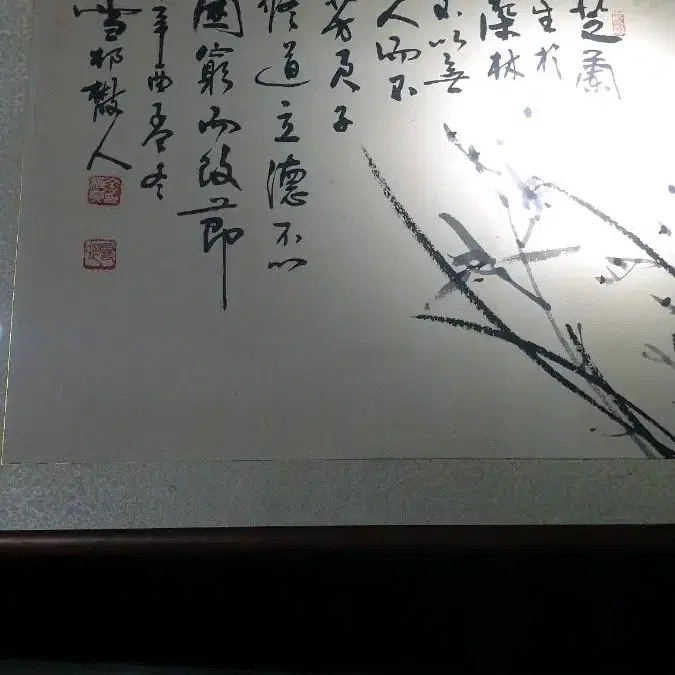 芝蘭
生於
深林
不以無
人而不
芳君子
修道立德不以
困窮而改節
辛酉孟冬
雪邨散人